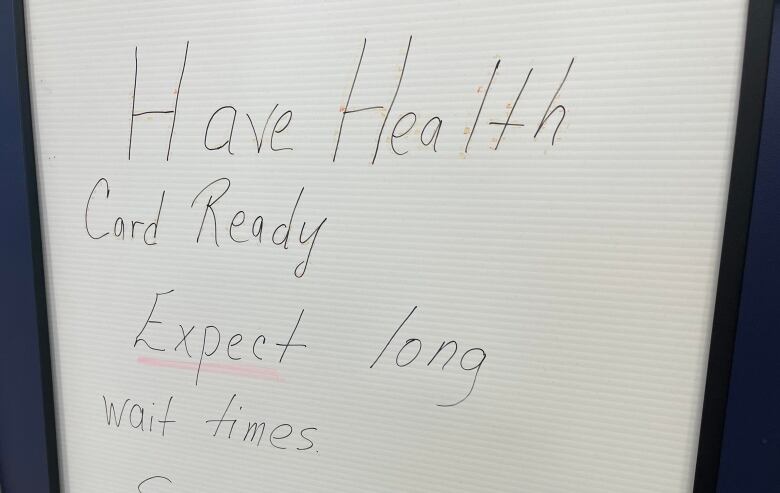 Have Health
Card Ready
Expect long
wait times.